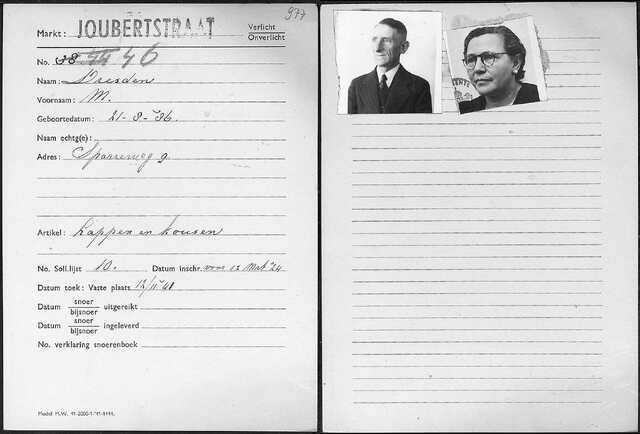 977
Markt: JOUBERTSTRAAT Verlicht
Onverlicht
No. 46
Naam: Dresden
Voornaam: M.
Geboortedatum: 21-8-'86
Naam echtg(e):
Adres: Sparreweg 9
Artikel: Lappen en kousen
No. Soll.lijst 10. Datum inschr. voor 12 Mrt '24
Datum toek: Vaste plaats 12/11 '41
Datum snoer
bijsnoer uitgereikt
Datum snoer
bijsnoer ingeleverd
No. verklaring snoerenboek
Model M.W.